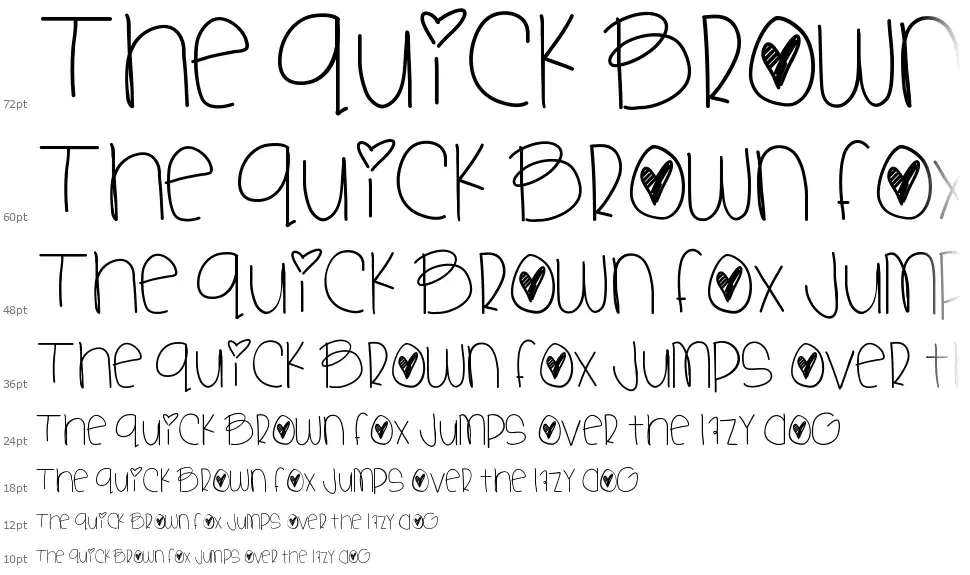 72pt The quick Brown
60pt The quick Brown fox
48pt The quick Brown fox jump
36pt The quick Brown fox jumps over th
24pt The quick Brown fox jumps over the lazy dog
18pt The quick Brown fox jumps over the lazy dog
12pt The quick Brown fox jumps over the lazy dog
10pt The quick Brown fox jumps over the lazy dog